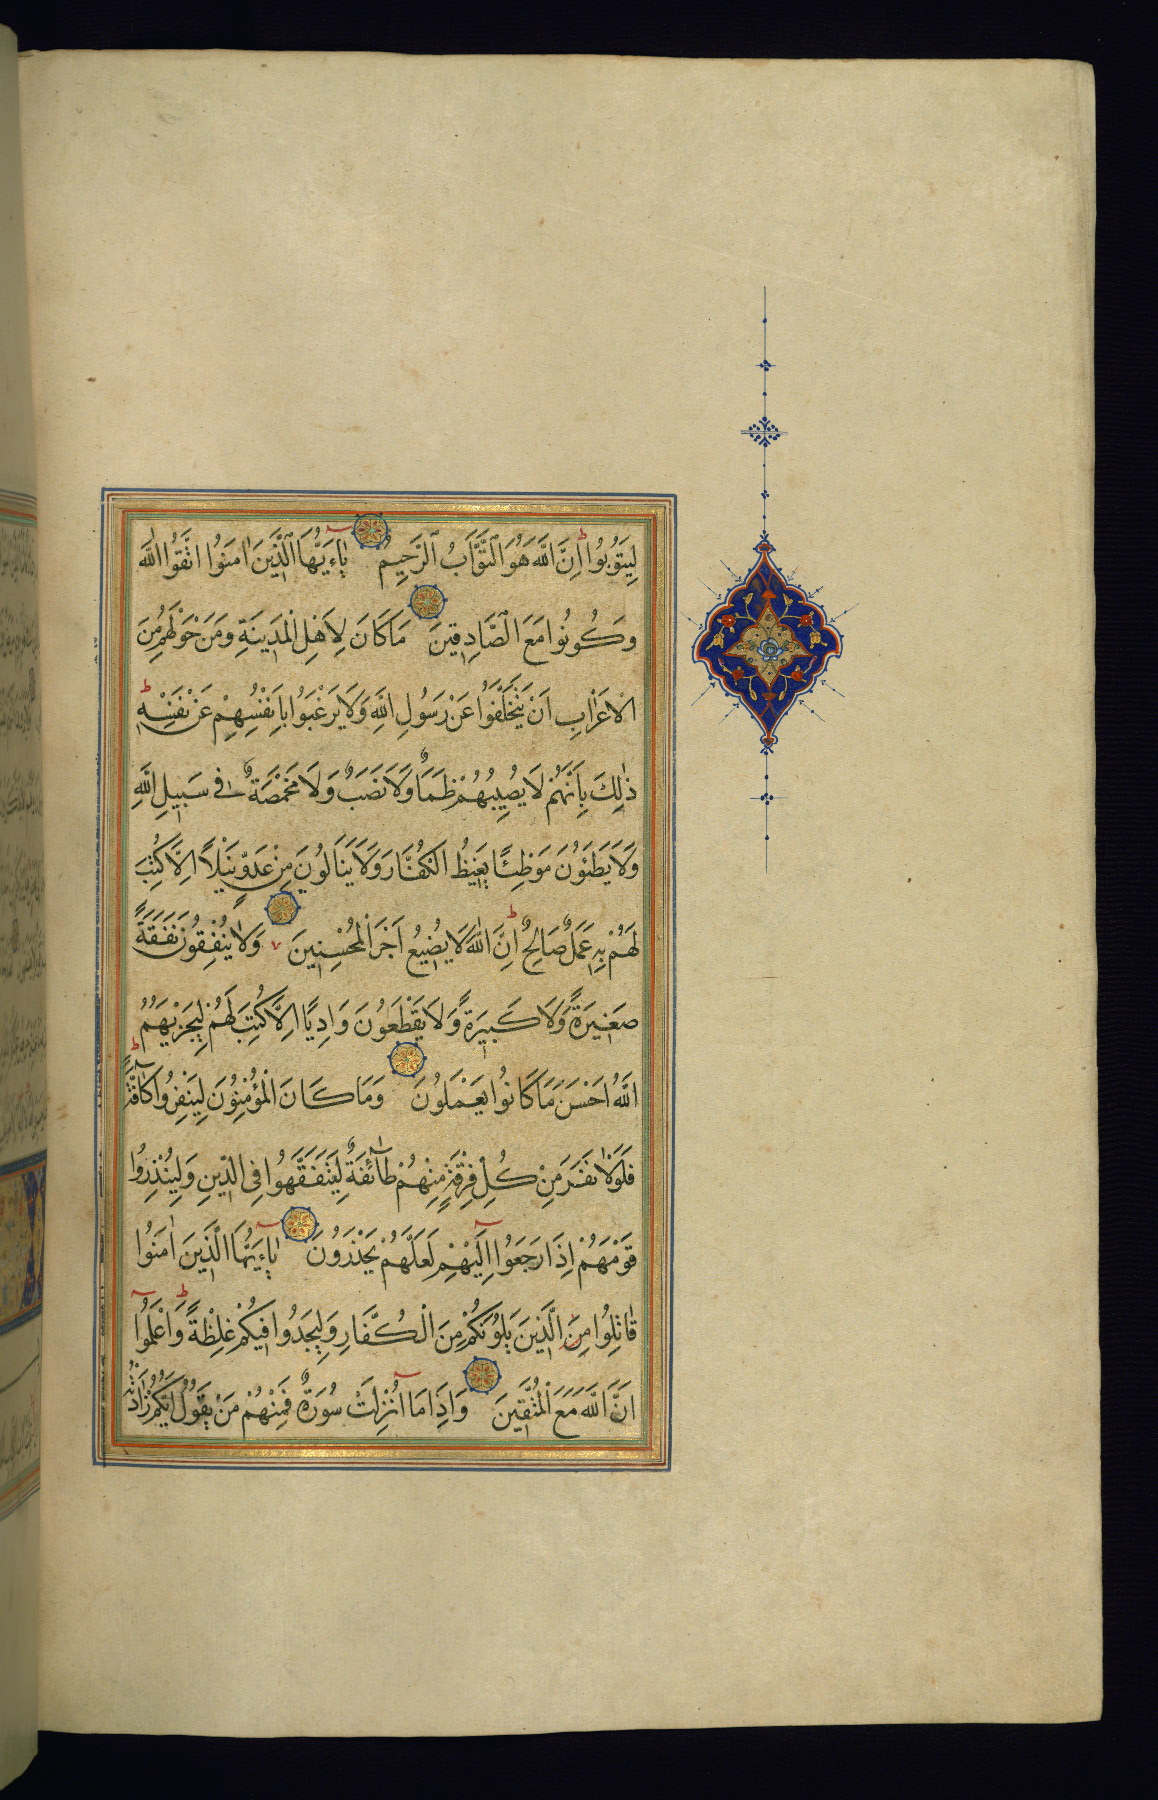 لِيَتُوبُوا اِنَّ اللّٰهَ هُوَ التَّوَّابُ الرَّحِيمُ يٰاءَيُّهَا الَّذِينَ اٰمَنُوا اتَّقُوا اللّٰهَ
وَكُونُوا مَعَ الصَّادِقِينَ مَا كَانَ لِاَهْلِ الْمَدِينَةِ وَمَنْ حَوْلَهُمْ مِنَ
الْاَعْرَابِ اَنْ يَتَخَلَّفُوا عَنْ رَسُولِ اللّٰهِ وَلَا يَرْغَبُوا بِاَنْفُسِهِمْ عَنْ نَفْسِهِ
ذٰلِكَ بِاَنَّهُمْ لَا يُصِيبُهُمْ ظَمَأٌ وَلَا نَصَبٌ وَلَا مَخْمَصَةٌ فِي سَبِيلِ اللّٰهِ
وَلَا يَطَئُونَ مَوْطِئًا يَغِيظُ الْكُفَّارَ وَلَا يَنَالُونَ مِنْ عَدُوٍّ نَيْلًا اِلَّا كُتِبَ
لَهُمْ بِهِ عَمَلٌ صَالِحٌ اِنَّ اللّٰهَ لَا يُضِيعُ اَجْرَ الْمُحْسِنِينَ وَلَا يُنْفِقُونَ نَفَقَةً
صَغِيرَةً وَلَا كَبِيرَةً وَلَا يَقْطَعُونَ وَادِيًا اِلَّا كُتِبَ لَهُمْ لِيَجْزِيَهُمُ
اللّٰهُ اَحْسَنَ مَا كَانُوا يَعْمَلُونَ وَمَا كَانَ الْمُؤْمِنُونَ لِيَنْفِرُوا كَآفَّةً
فَلَوْلَا نَفَرَ مِنْ كُلِّ فِرْقَةٍ مِنْهُمْ طَآئِفَةٌ لِيَتَفَقَّهُوا فِي الدِّينِ وَلِيُنْذِرُوا
قَوْمَهُمْ اِذَا رَجَعُوا اِلَيْهِمْ لَعَلَّهُمْ يَحْذَرُونَ يٰاءَيُّهَا الَّذِينَ اٰمَنُوا
قَاتِلُوا الَّذِينَ يَلُونَكُمْ مِنَ الْكُفَّارِ وَلِيَجِدُوا فِيكُمْ غِلْظَةً وَاعْلَمُوا
اَنَّ اللّٰهَ مَعَ الْمُتَّقِينَ وَاِذَا مَا اُنْزِلَتْ سُورَةٌ فَمِنْهُمْ مَنْ يَقُولُ اَيُّكُمْ زَادَتْهُ